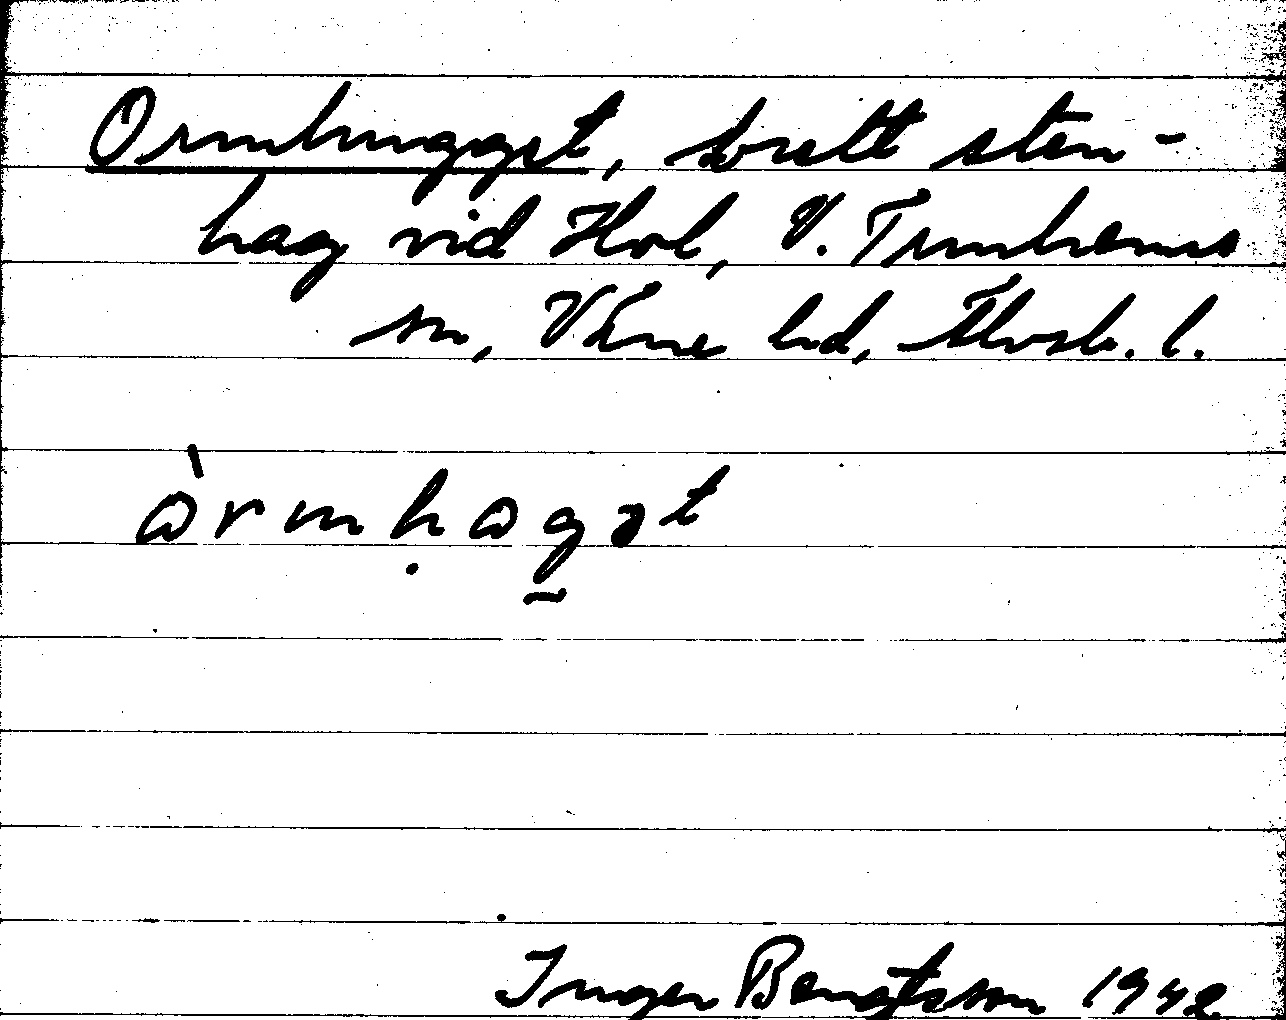 Ormhugget, brett sten-
hag vid Hol, V. Tunhems
sn, Väne hd, Älvsb. l.
òrmhagət
Inger Bengtsson 1942